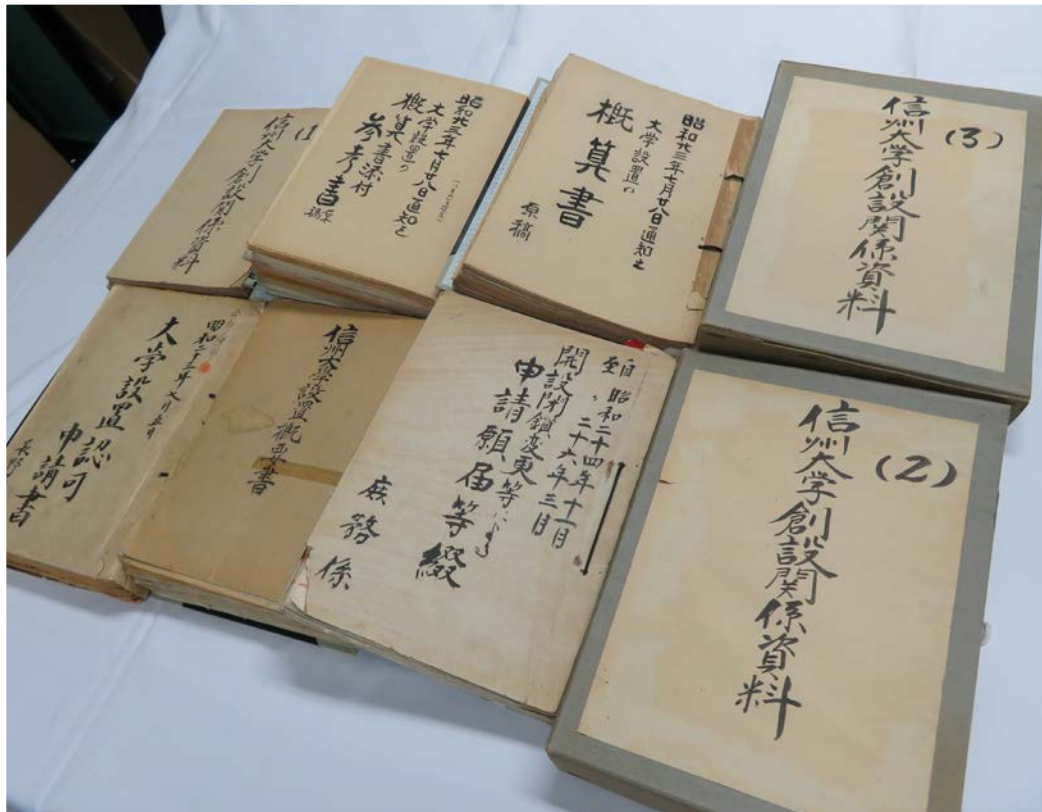 (1)
信州大学創設関係資料
昭和廿三年七月廿八日通知之
大学設置の
概算書添付
参考書
昭和廿三年七月廿八日通知之
大学設置の
概算書
原稿
(3)
信州大学創設関係資料
大学設置認可
申請書
長野
信州大学設置概要書
自昭和二十四年十一月
至〃二十六年三月
開設閉鎖変更等による
申請願届等綴
庶務係
(2)
信州大学創設関係資料